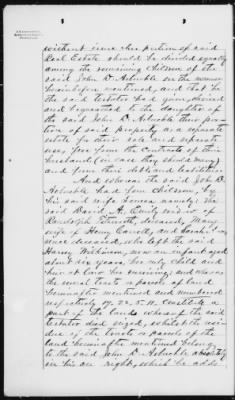 without issue her portion of said
Real Estate should be divided equally
among the remaining children of the
said John D. in the manner
hereinbefore mentioned, and that he
the said testator had given, devised
and bequeathed to the daughters of
the said John D. their por-
tion of said property as a separate
estate for their sole and separate
uses free from the contracts of their
husbands (in case they should marry)
and from their debts and liabilities
And whereas the said John D.
had four children, by
his said wife Louisa namely: the
said David A., Emily widow of
Randolph deceased, Mary
wife of Henry and Sarah
since deceased, who left the said
Harry Wilkinson, now an infant aged
about six years, her only child and
heir at law her surviving; and whereas
the several tracts or parcels of land
hereinafter mentioned and numbered
respectively 19, 20, 5, 11, constitute a
part of the lands whereof the said
testator died seized, whilst the resi-
due of the tracts or parcels of the
land hereinafter mentioned belong
to the said John D. absolutely
in his own right, which he adds